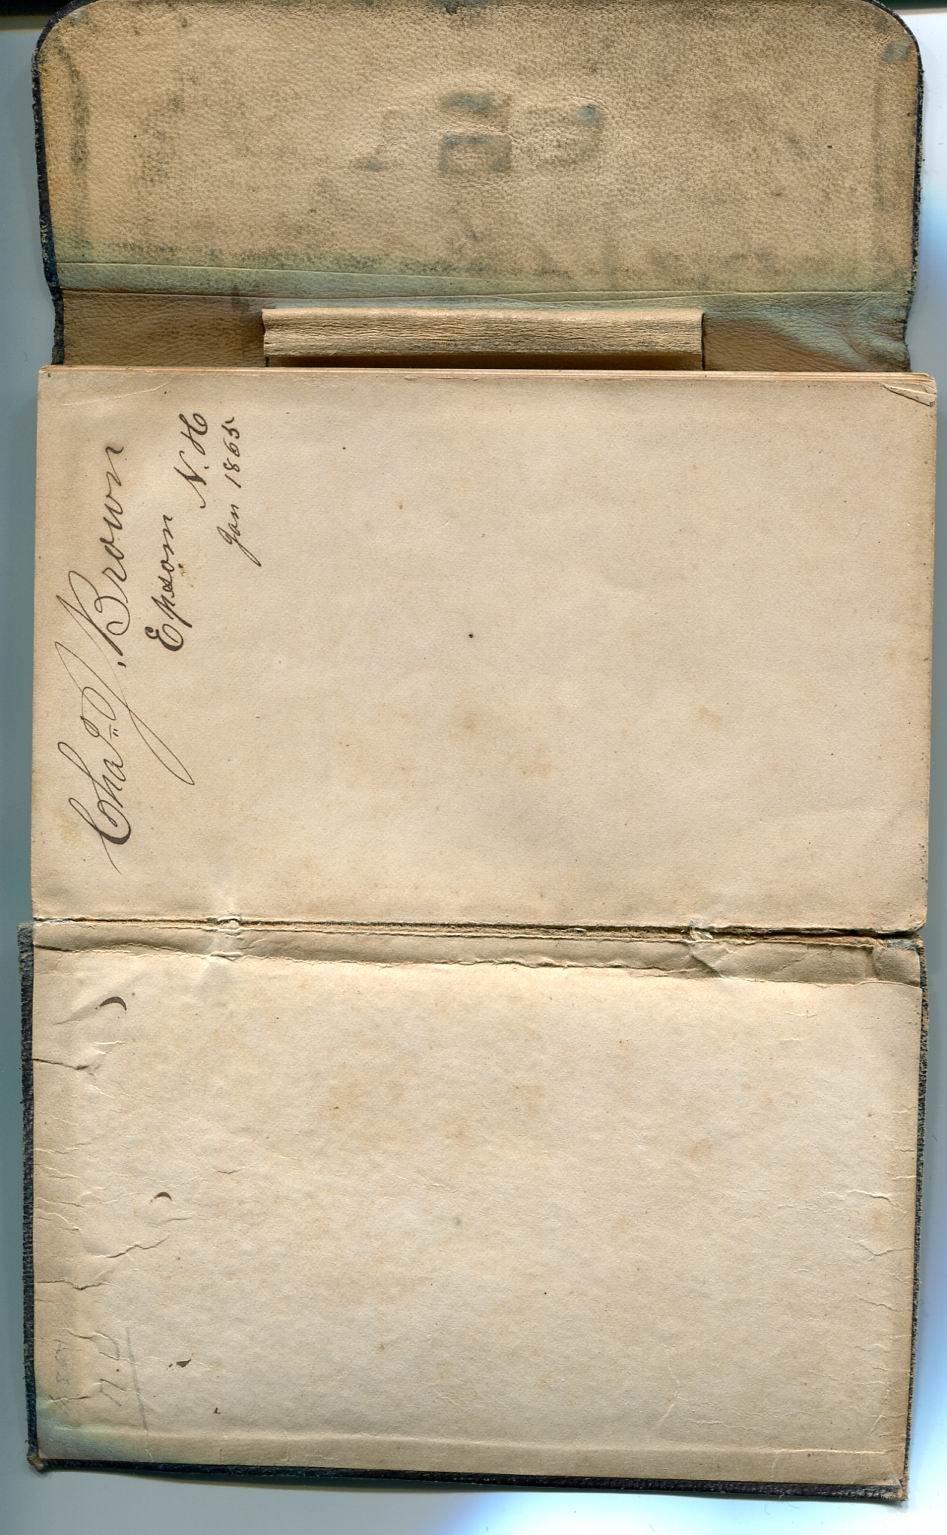 Chas. J. Brown
Epsom N.H
Jan 1865